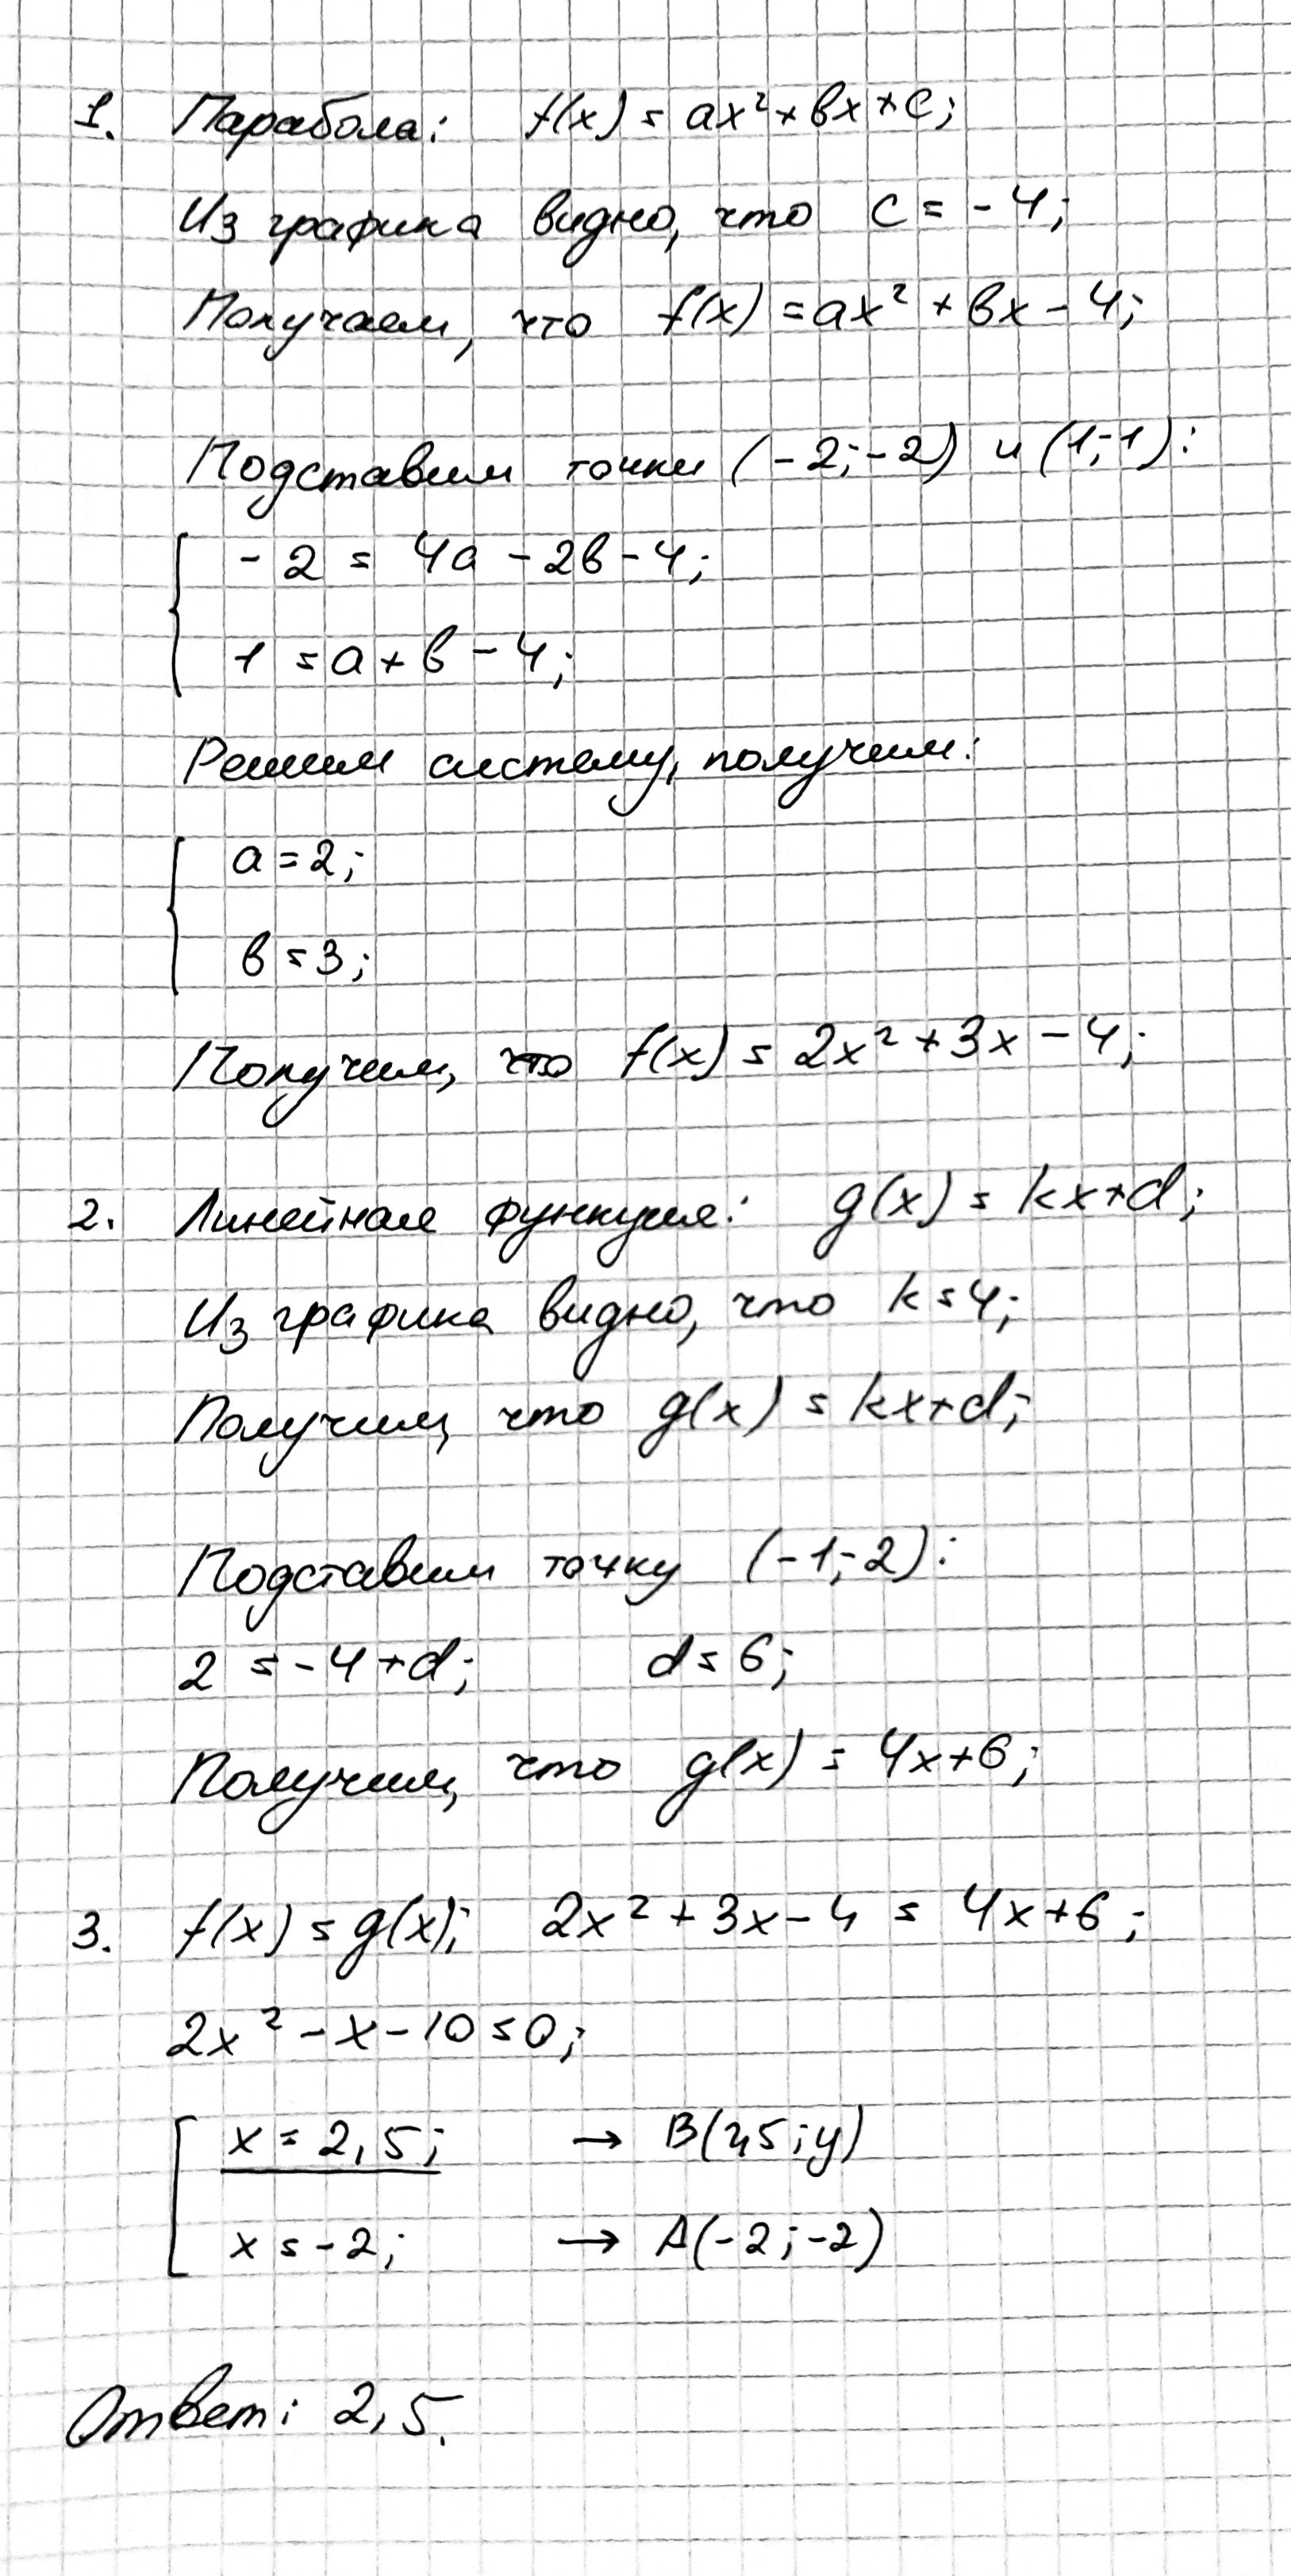 1. Парабола: f(x) = ax² + bx + c;
Из графика видно, что c = -4;
Получаем, что f(x) = ax² + bx - 4;
Подставим точки (-2; -2) и (1; 1):
-2 = 4a - 2b - 4;
1 = a + b - 4;
Решим систему, получим:
a = 2;
b = 3;
Получим, что f(x) = 2x² + 3x - 4;
2. Линейная функция: g(x) = kx + d;
Из графика видно, что k = 4;
Получим, что g(x) = kx + d;
Подставим точку (-1; 2):
2 = -4 + d; d = 6;
Получим, что g(x) = 4x + 6;
3. f(x) = g(x); 2x² + 3x - 4 = 4x + 6;
2x² - x - 10 = 0;
x = 2,5; → B(2,5; y)
x = -2; → A(-2; -2)
Ответ: 2,5.